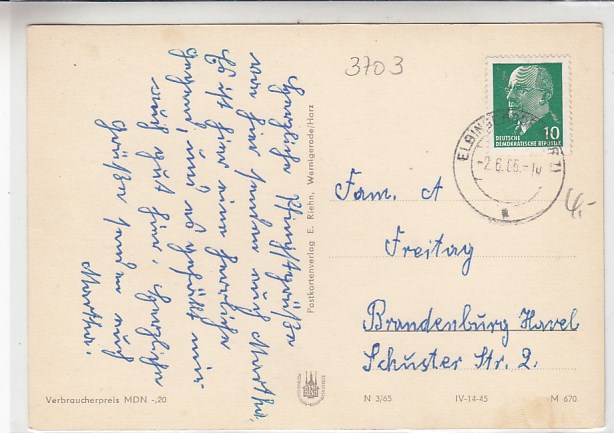 3703
Herzliche Pfingstgrüße
von hier senden euch Martha.
Es ist hier eine herrliche
Gegend, und es gefällt mir
auch gut hier. Herzliche
Grüße senden euch
Martha.
Postkartenverlag E. Riehn, Wernigerode/Harz
DEUTSCHE
DEMOKRATISCHE REPUBLIK
10
-2.6.66.-10
4,-
Fam. A
Freitag
Brandenburg Havel
Schuster Str. 2.
Verbraucherpreis MDN -,20
N 3/65
IV-14-45
M 670